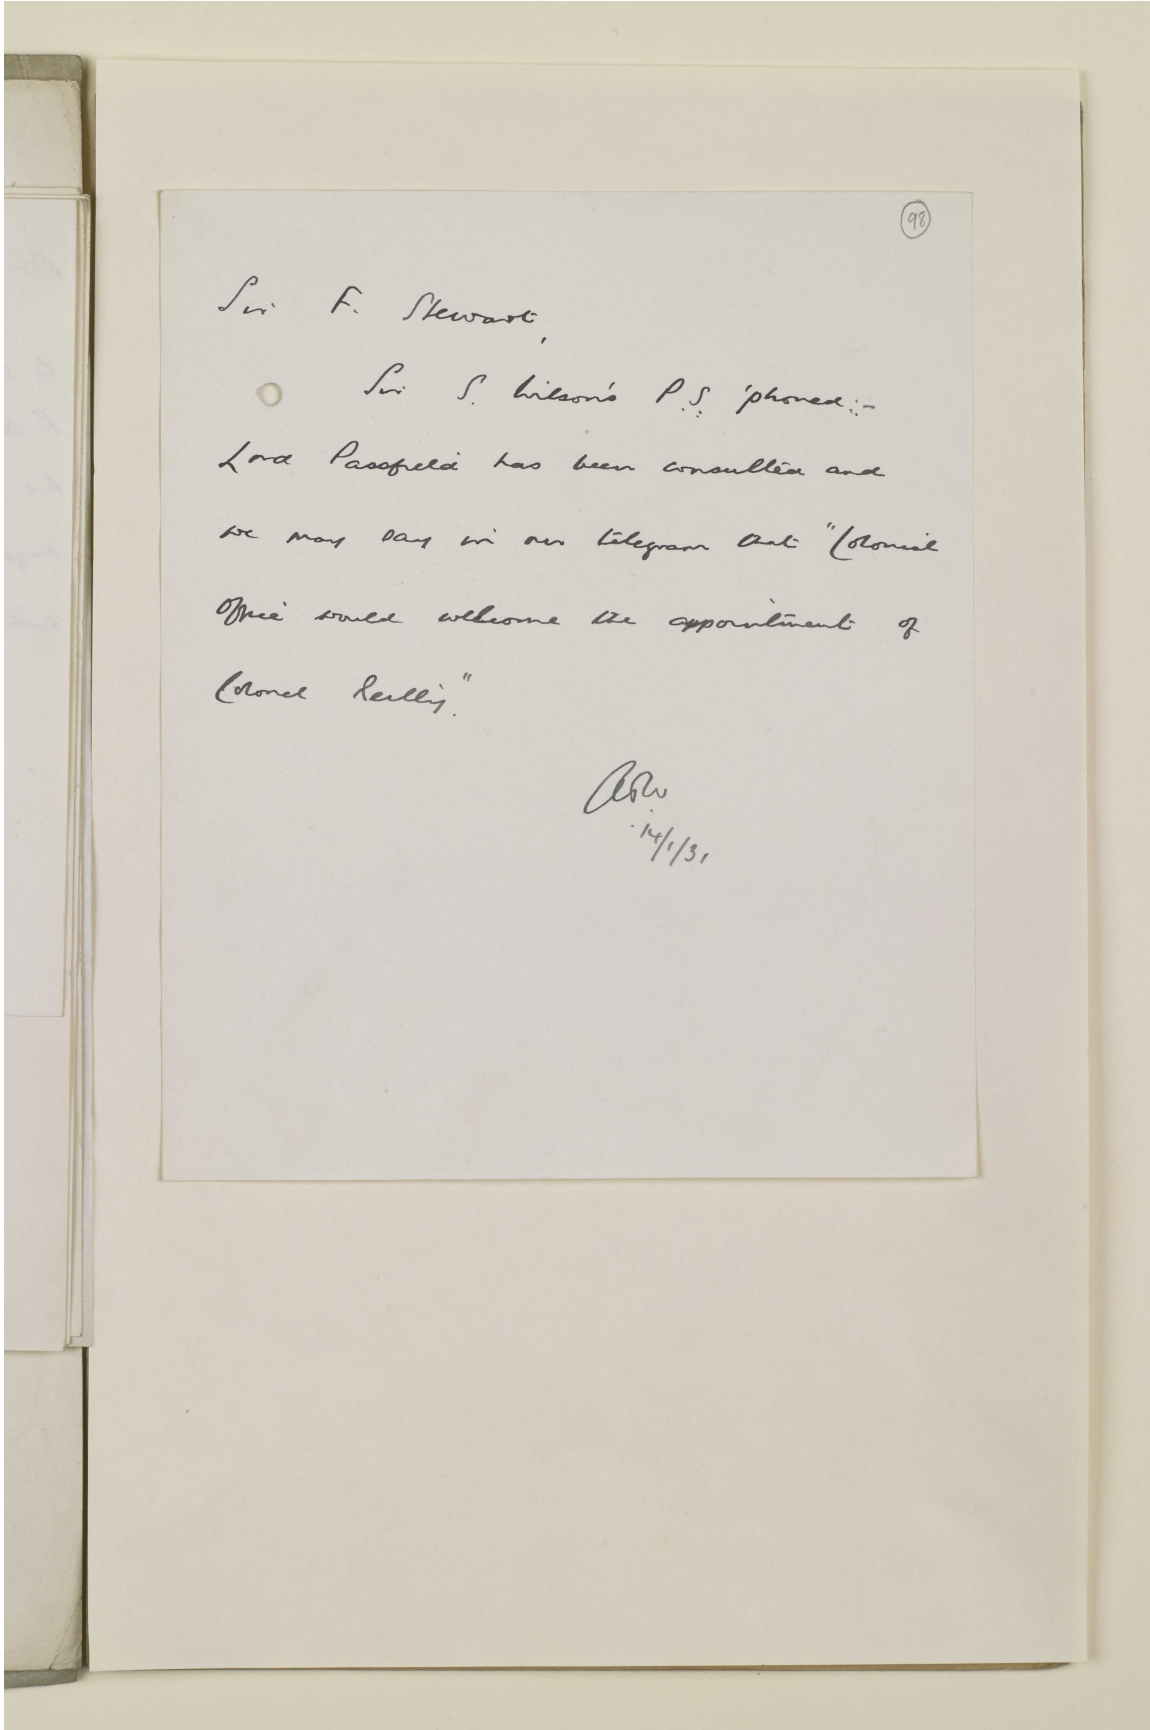 98
Sir F. Stewart,
Sir S. Wilson's P.S. 'phoned:-
Lord Passfield has been consulted and
we may say in our telegram that "Colonial
Office would welcome the appointment of
Colonel Reilly".
14/1/31